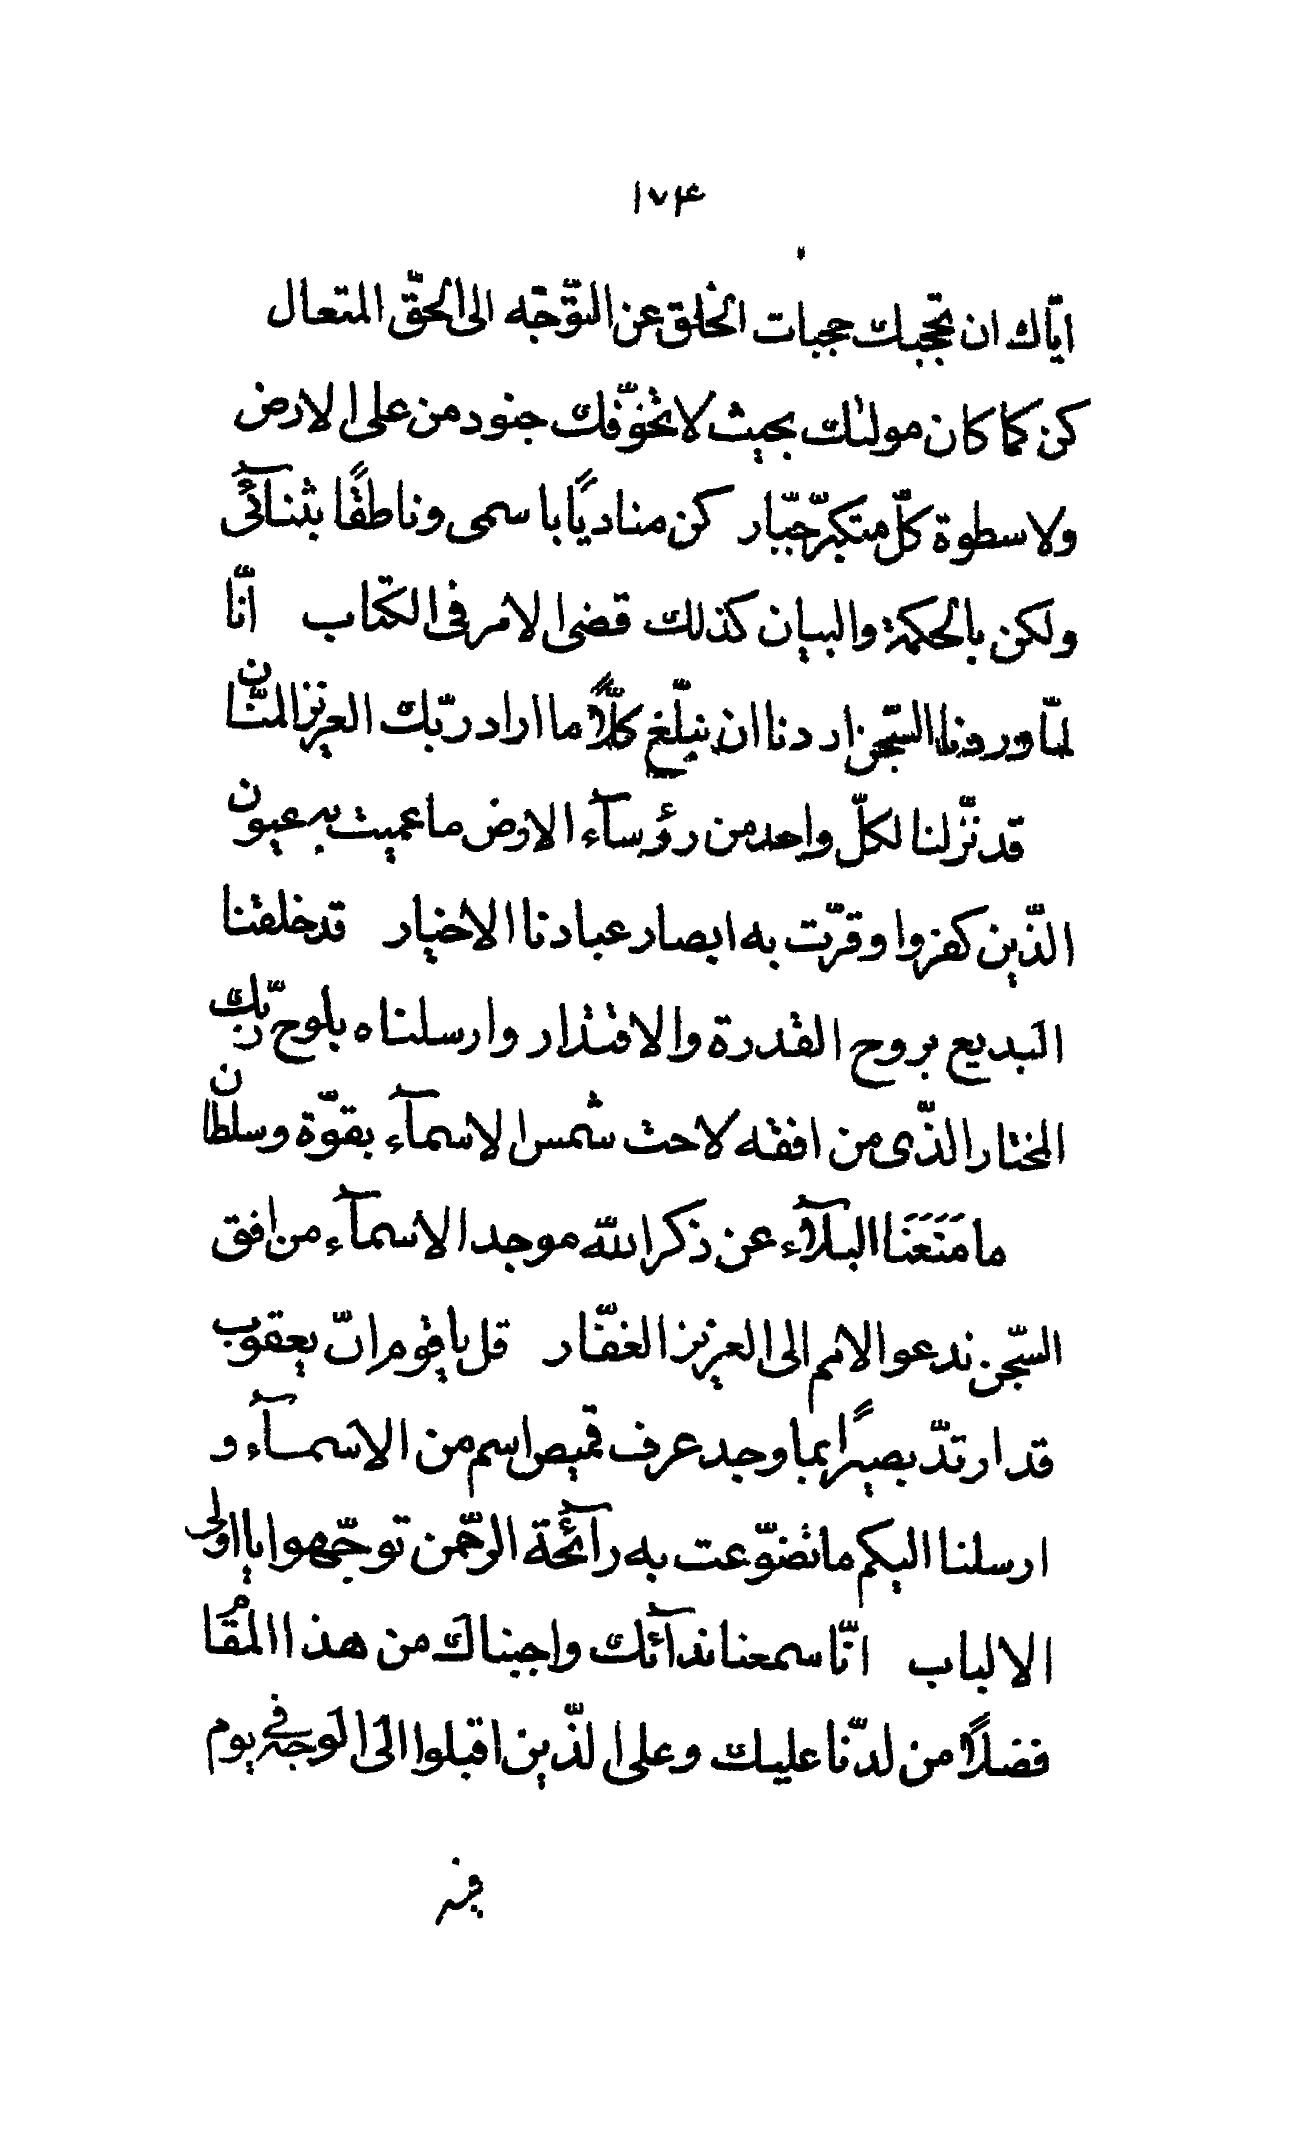 ١٧۴
ايّاك ان تحجبك حجبات الخلق عن التوّجّه الى الحقّ المتعال
كن كما كان موليٰك بحيث لا تخوّفك جنود من على الارض
ولا سطوة كلّ متكبّر جبّار كن مناديًا باسمى وناطقًا بثنائى
ولكن بالحكمة والبيان كذلك قضى الامر فى الكتاب انّا
لمّا وردنا السّجن اردنا ان نبلّغ كلًّا ما اراد ربّك العزيز المنّان
قد نزّلنا لكلّ واحد من رؤسآء الارض ما عميت به عيون
الّذين كفروا وقرّت به ابصار عبادنا الاخيار قد خلقنا
البديع بروح القدرة والاقتدار وارسلناه بلوح ربّك
المختار الّذى من افقه لاحت شمس الاسمآء بقوّة وسلطان
ما مَنَعَنَا البلآء عن ذكر الله موجد الاسمآء من افق
السّجن ندعو الامم الى العزيز الغفّار قل يا قوم انّ يعقوب
قد ارتدّ بصيرًا بما وجد عرف قميص اسم من الاسمآء و
ارسلنا اليكم ما تضوّعت به رآئحة الرّحمن توجّهوا يا اولى
الالباب انّا سمعنا ندآئك واجبناك من هذا المقام
فضلًا من لدنّا عليك وعلى الّذين اقبلوا الى الوجه فى يوم
فيه